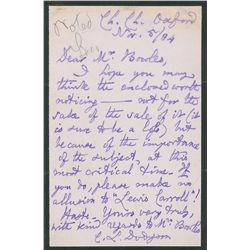 Ch. Ch. Oxford
Nov. 5/84
Dear Mr. Bowles,
I hope you may
think the enclosed worth
noticing — not for the
sake of the sale of it (it
is sure to be a loss) but
because of the importance
of the subject, at this
most critical time. If
you do, please make no
allusion to "Lewis Carroll"!
Haste. Yours very truly,
with kind regards to Mrs. Bowles
C. L. Dodgson